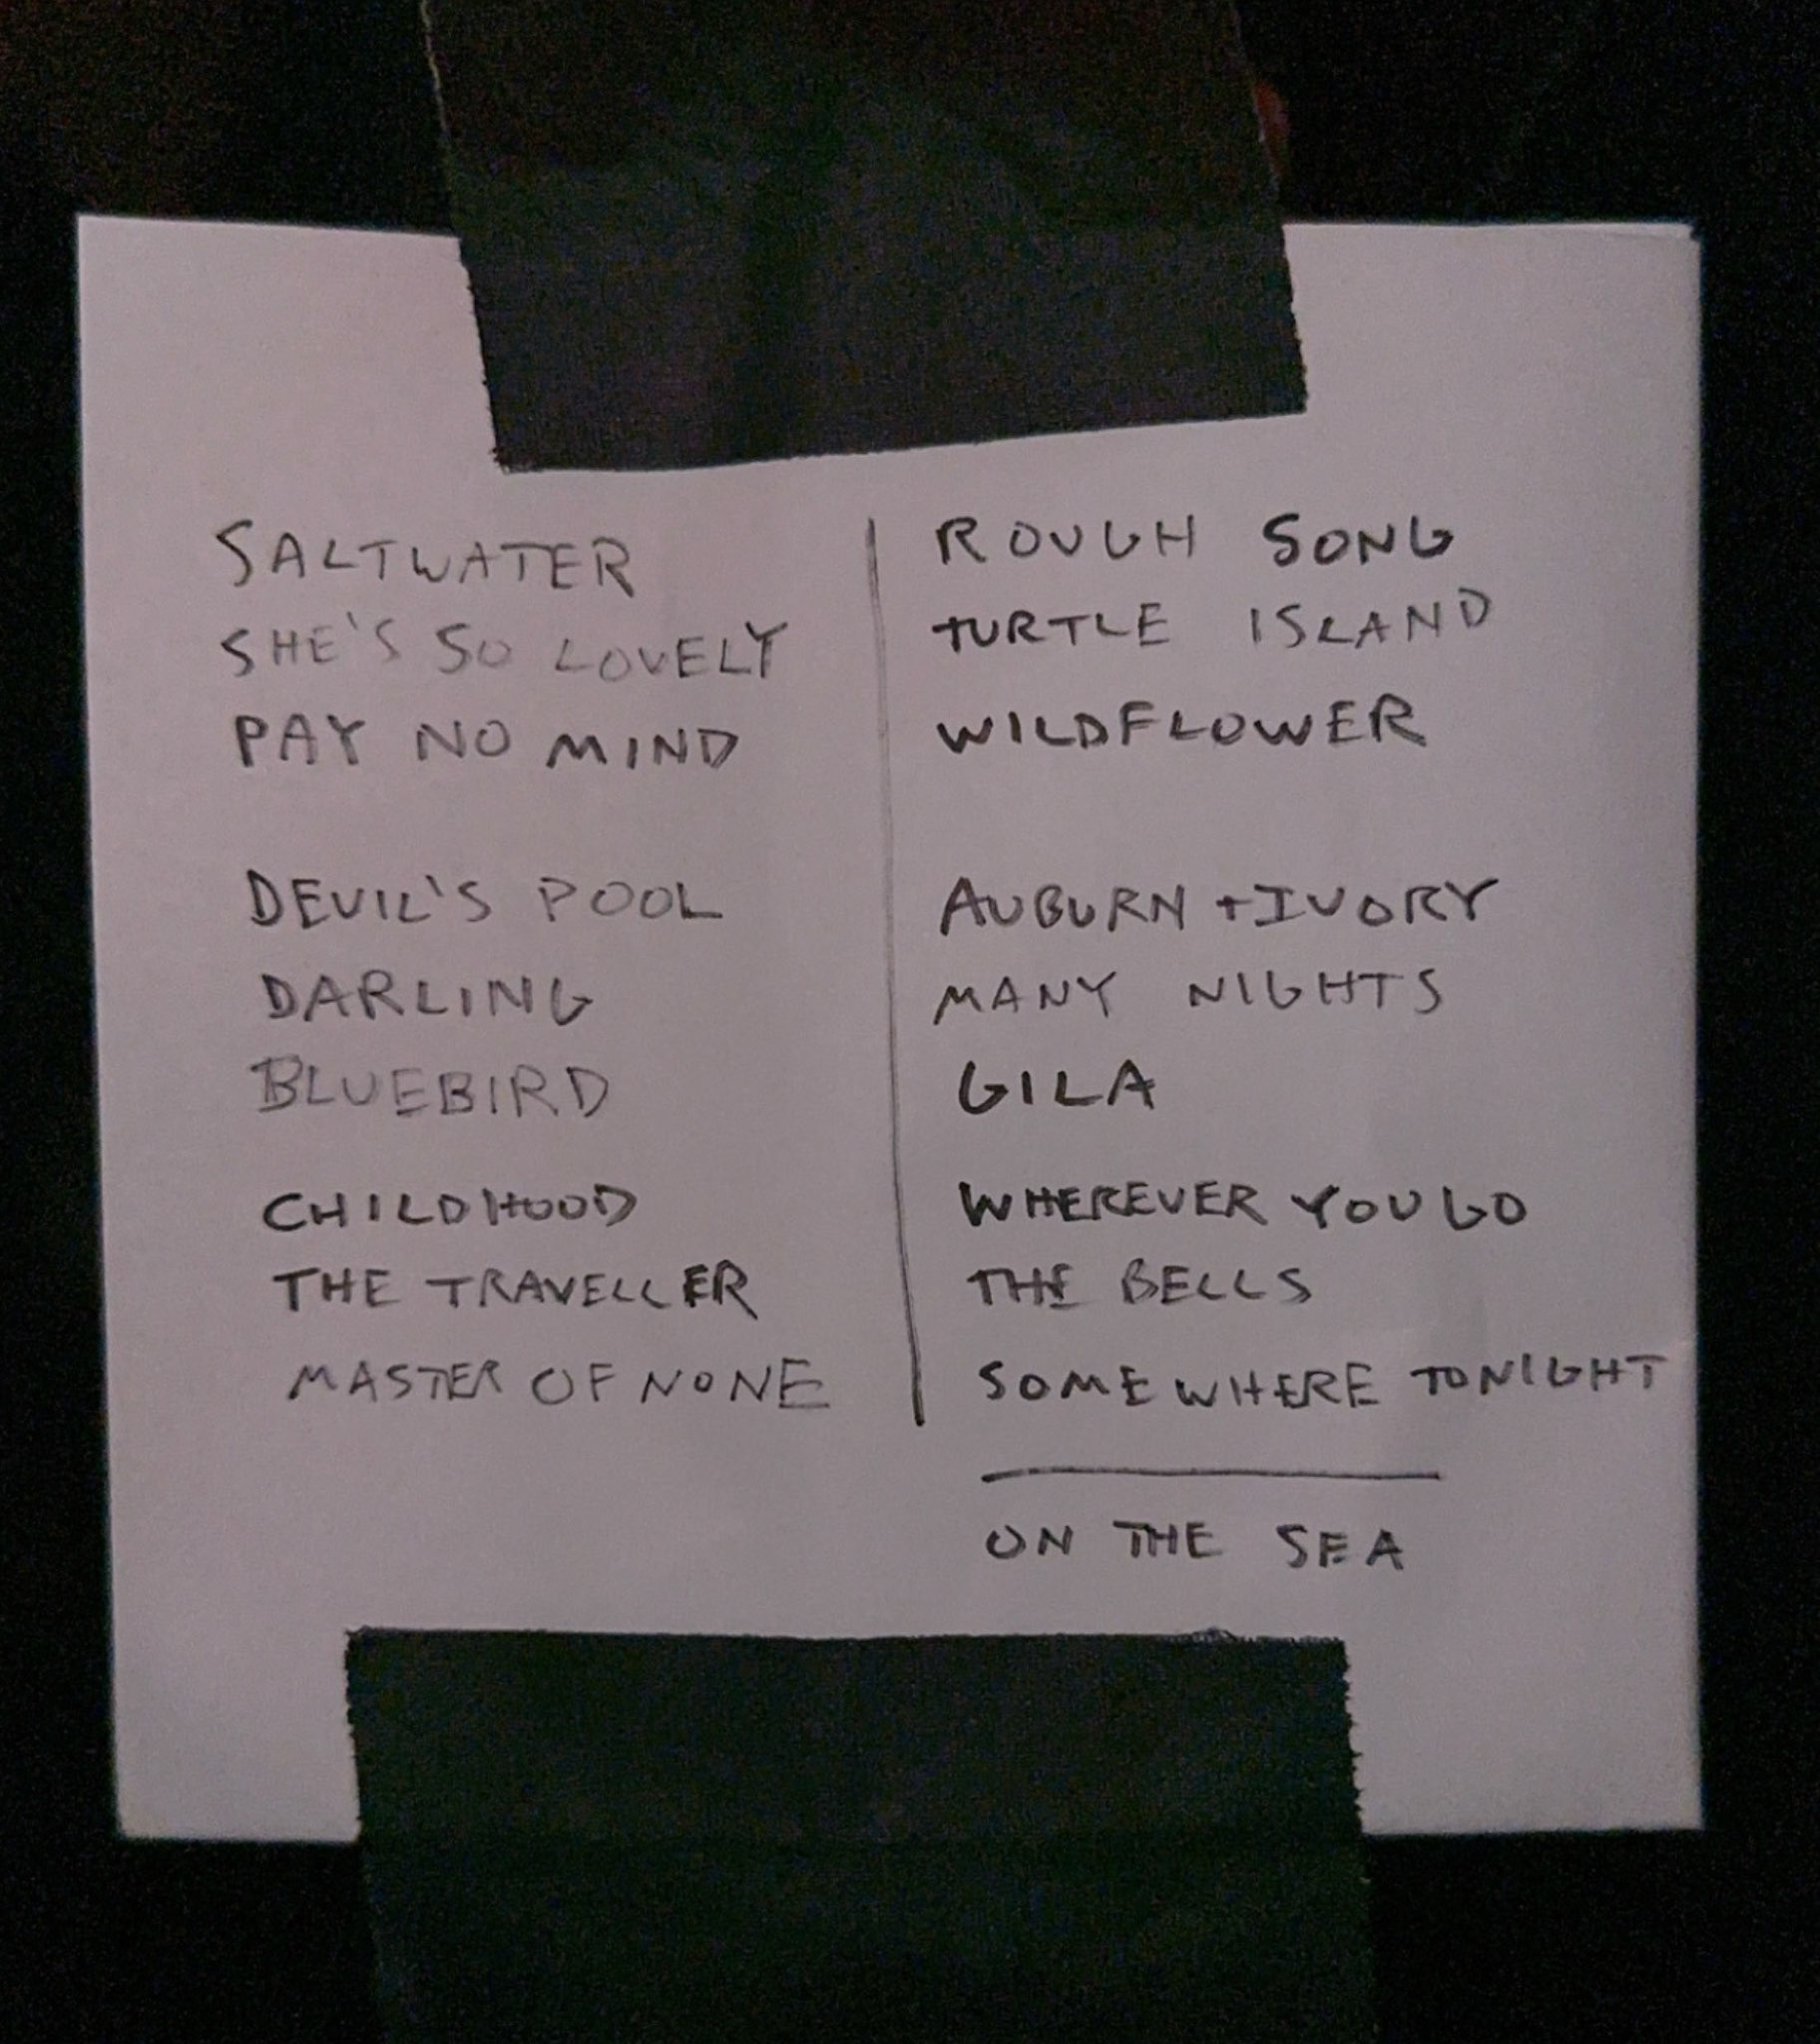 SALTWATER
SHE'S SO LOVELY
PAY NO MIND
DEVIL'S POOL
DARLING
BLUEBIRD
CHILDHOOD
THE TRAVELLER
MASTER OF NONE
ROUGH SONG
TURTLE ISLAND
WILDFLOWER
AUBURN + IVORY
MANY NIGHTS
GILA
WHEREVER YOU GO
THE BELLS
SOMEWHERE TONIGHT
ON THE SEA